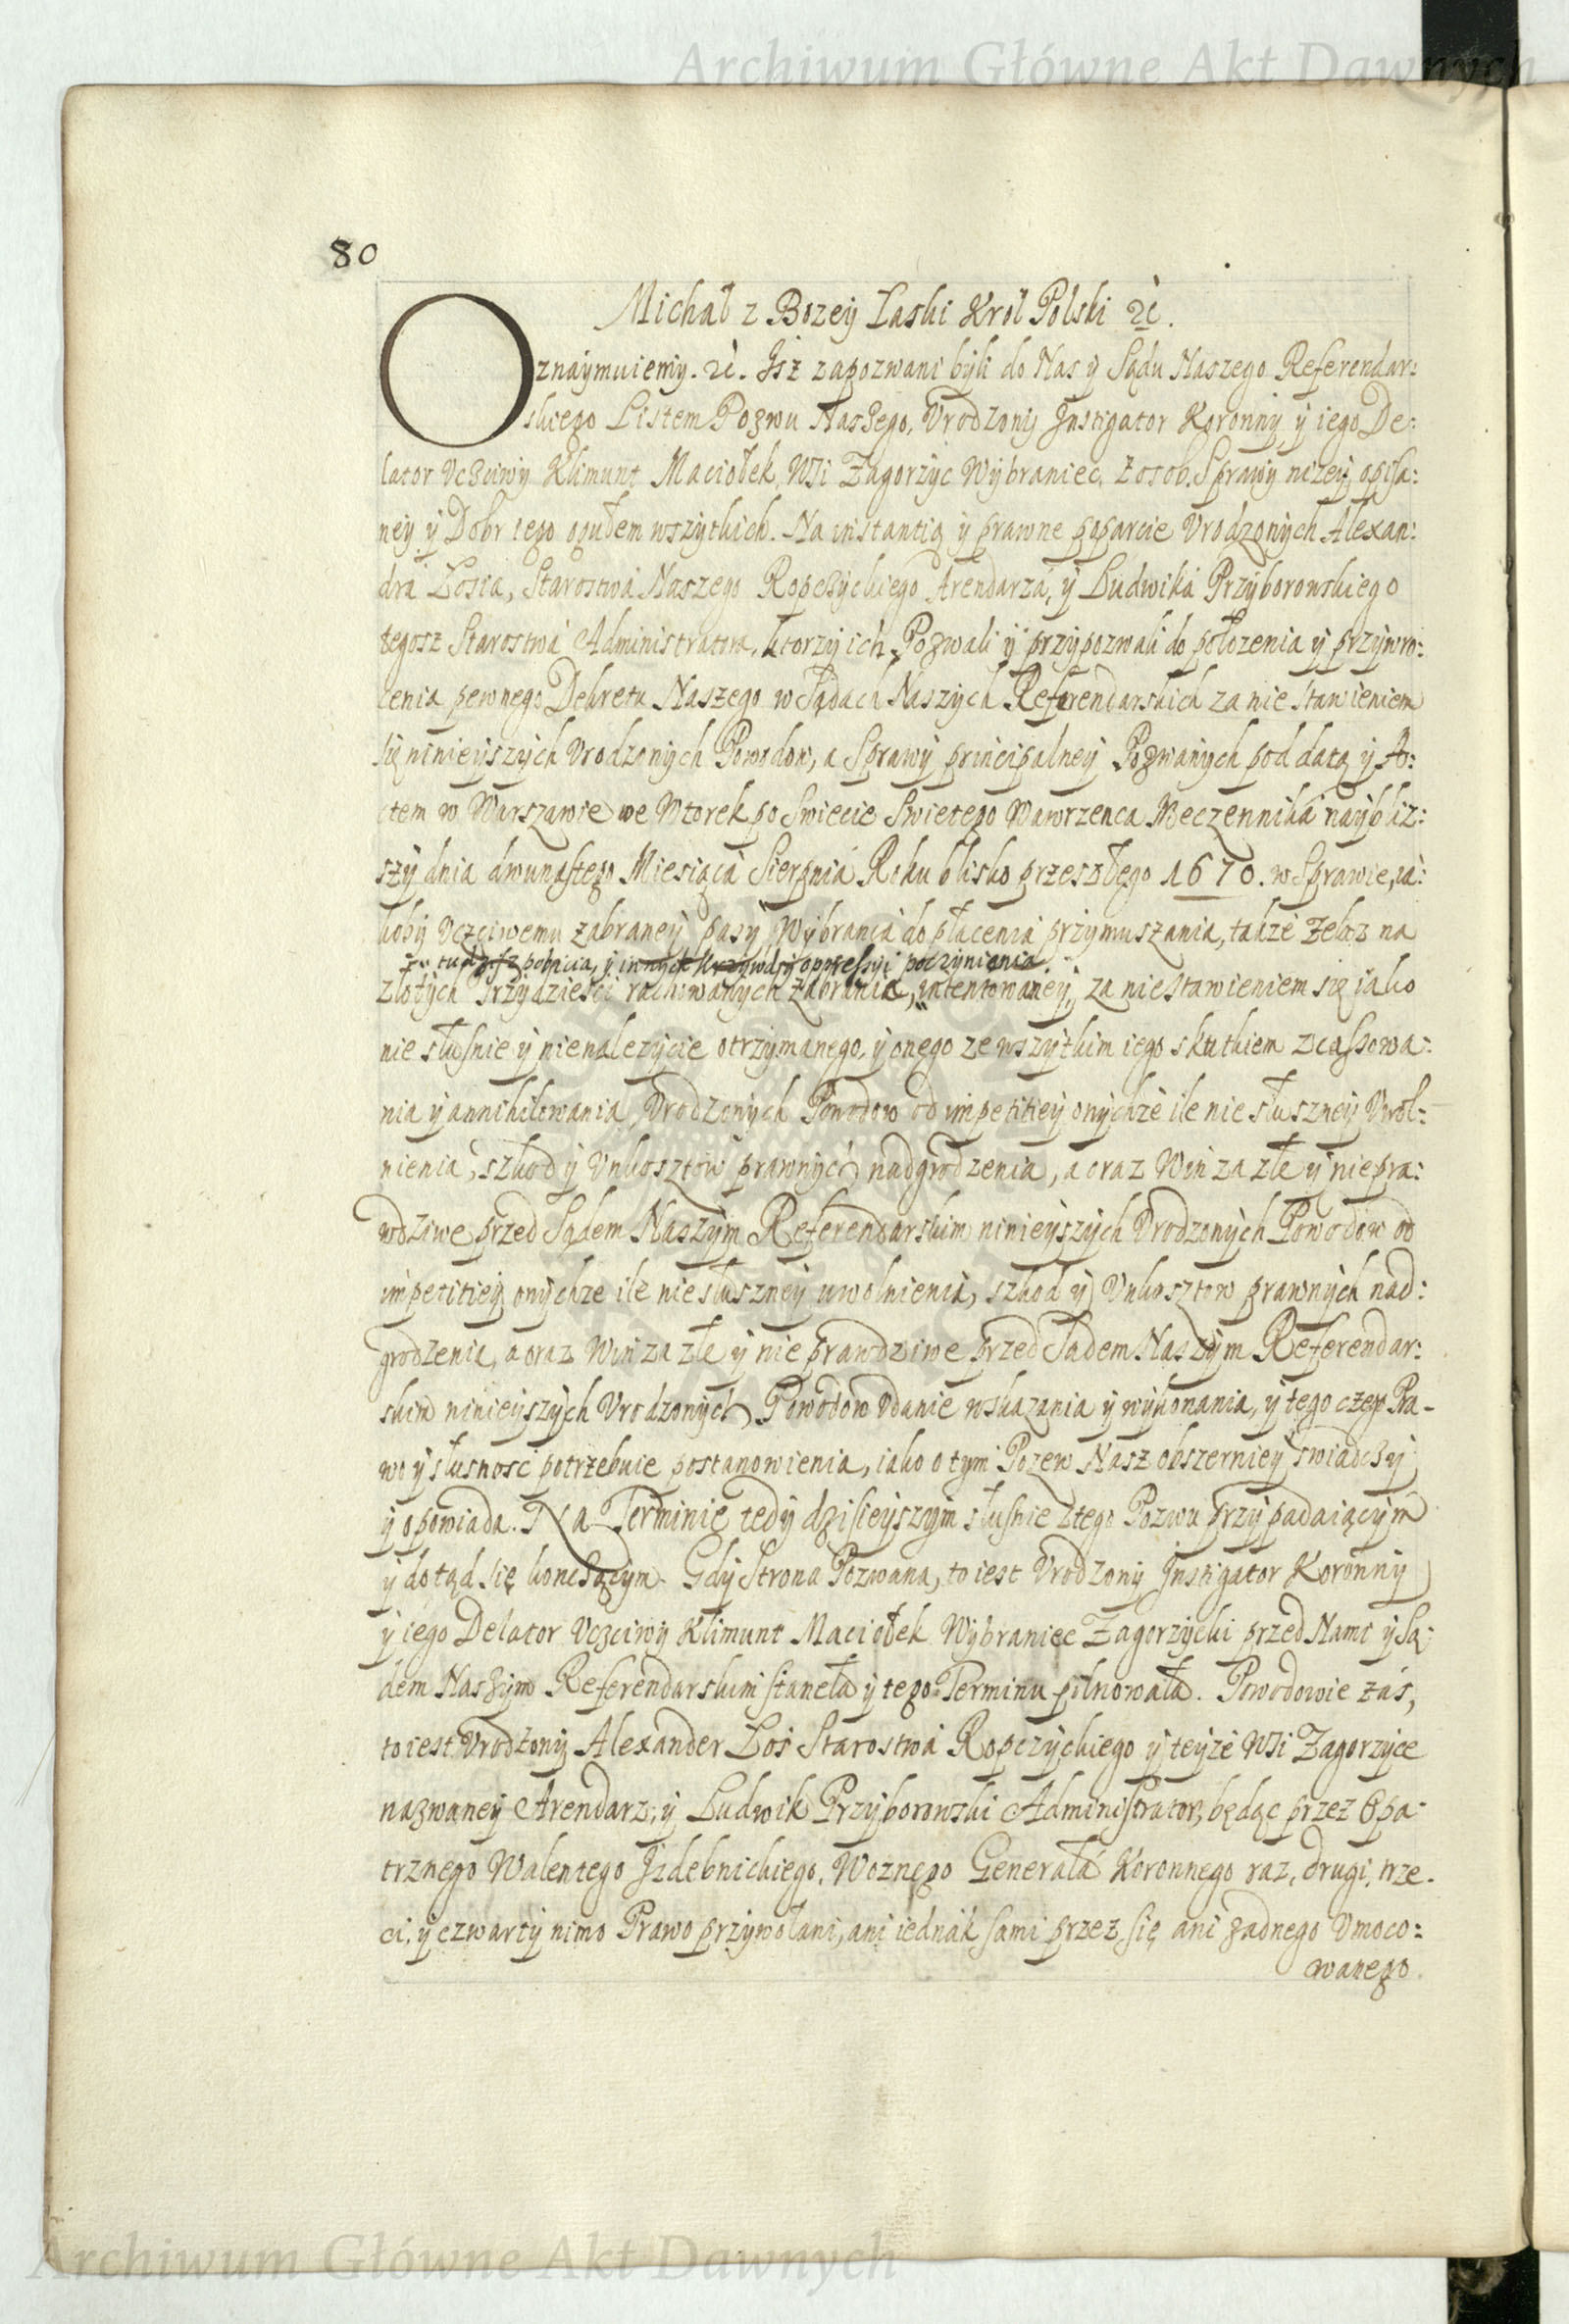 Archiwum Główne Akt Dawnych
80
Michał z Bozey Łaski Krol Polski &c.
Oznaymuiemy. &c. Jsz zapozwani byli do Nas y Sądu Naszego Referendar:
skiego Listem Pozwu Naszego, Vrodzony Instigator Koronny y iego De:
lator Vczciwy Klimunt Maciołek, Wsi Zagorzyc Wybraniec, z osob, Sprawy nizey opisa:
ney y Dobr iego ogułem wszytkich. Na instantią y prawne poparcie Vrodzonych Alexan:
dra Łosia, Starostwa Naszego Ropczyckiego Arendarza, y Ludwika Przyborowskiego
tegosz Starostwa Administratora, ktorzy ich Pozwali y przypozwali do położenia y przywro:
cenia pewnego Dekretu Naszego w Sądach Naszych Referendarskich za nie stawieniem
się ninieyszych Vrodzonych Powodow, a Sprawy principalney Pozwanych pod datą y A:
ctem w Warszawie we Wtorek po Swiecie Swietego Wawrzenca Meczennika naybliz:
szy dnia dwunastego Miesiąca Sierpnia Roku blisko przeszłego 1670. w Sprawie, ia:
koby Vczciwemu zabraney pasy, Wybranca do płacenia przymuszania, takze Zeloz na
tudziesz pobicia, y innych krzywd y oppressyi poczynienia
złotych Trzydziesci rachowanych zabrania, intentowaney, za niestawieniem się iako
nie słusnie y nienalezycie otrzymanego, y onego ze wszytkim iego skutkiem zcassowa:
nia y annihilowania, Vrodzonych Powodow od impetitiey onychze ile nie słuszney Vwol:
nienia, szkod y Vnkosztow prawnych nadgrodzenia, a oraz Win za złe y niepra:
wdziwe przed Sądem Naszym Referendarskim ninieyszych Vrodzonych Powodow od
impetitiey onychze ile niesłuszney uwolnienia, szkod y Vnkosztow prawnych nad:
grodzenia, a oraz Win za złe y nie prawdziwe przed Sadem Naszym Referendar:
skim ninieyszych Vrodzonych Powodow Vdanie wskazania y wykonania, y tego czego Pra-
wo y słusnosc potrzebuie postanowienia, iako o tym Pozew Nasz obszerniey swiadczy
y opowiada. Na Terminie tedy dzisieyszym słusnie z tego Pozwu przypadaiącym
y dotąd się konczącym. Gdy Strona Pozwana, to iest Vrodzony Instigator Koronny
y iego Delator Vczciwy Klimunt Maciołek Wybraniec Zagorzycki przed Nami y Są:
dem Naszym Referendarskim staneła y tego Terminu pilnowała. Powodowie zas,
to iest Vrodzony Alexander Łos Starostwa Ropczyckiego y teyze Wsi Zagorzyce
nazwaney Arendarz, y Ludwik Przyborowski Administrator, będąc przez Opa-
trznego Walentego Jzdebnickiego, Woznego Generała Koronnego raz, drugi, trze-
ci, y czwarty nimo Prawo przywołani, ani iednak sami przez się ani zadnego Vmoco:
wanego
Archiwum Główne Akt Dawnych